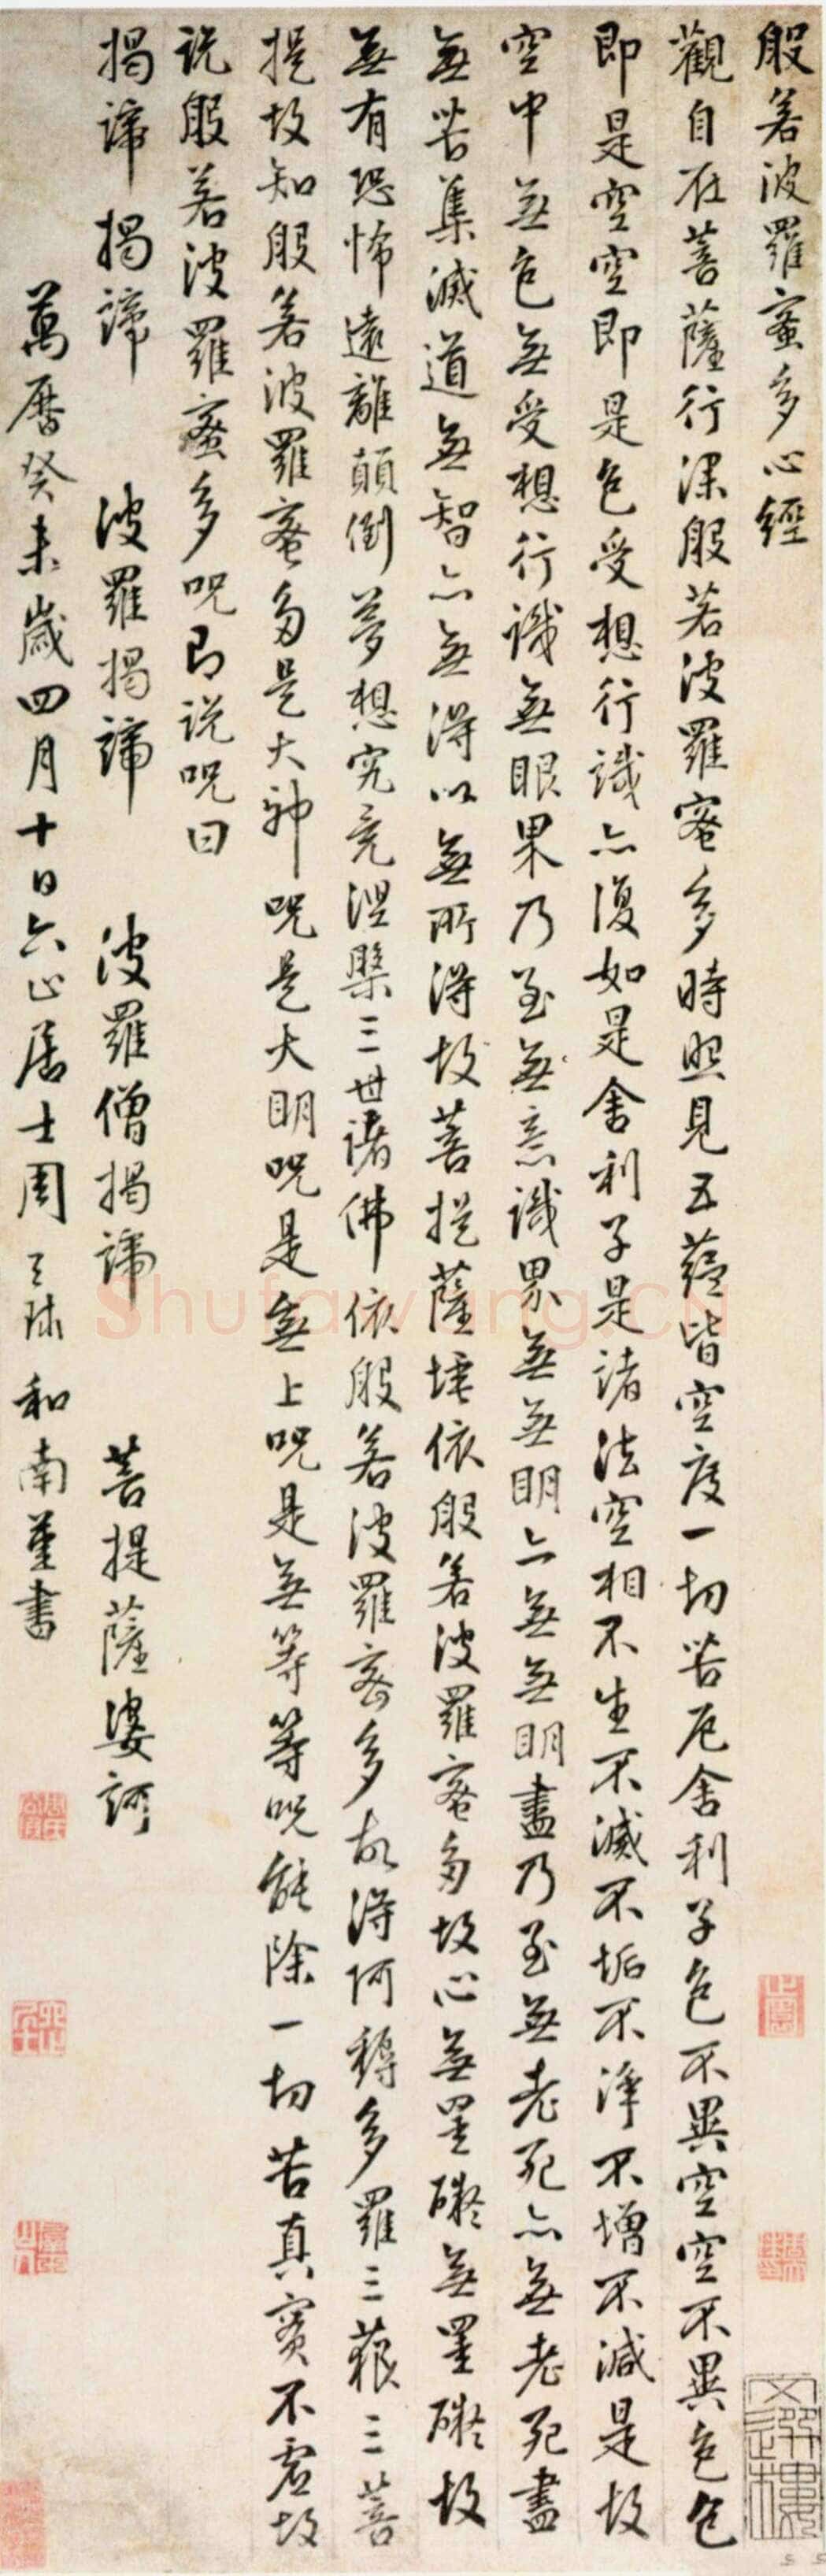 般若波羅蜜多心經
觀自在菩薩行深般若波羅蜜多時照見五蘊皆空度一切苦厄舍利子色不異空空不異色色
即是空空即是色受想行識亦復如是舍利子是諸法空相不生不滅不垢不淨不增不減是故
空中無色無受想行識無眼果乃至無意識界無無明亦無無明盡乃至無老死亦無老死盡
無苦集滅道無智亦無得以無所得故菩提薩埵依般若波羅蜜多故心無罣礙無罣礙故
無有恐怖遠離顛倒夢想究竟涅槃三世諸佛依般若波羅蜜多故得阿耨多羅三藐三菩
提故知般若波羅蜜多是大神咒是大明咒是無上咒是無等等咒能除一切苦真實不虛故
說般若波羅蜜多咒即說咒曰
揭諦揭諦 波羅揭諦 波羅僧揭諦 菩提薩婆訶
萬曆癸未歲四月十日六止居士周天球和南堇書
文選樓
Shufawang.cn